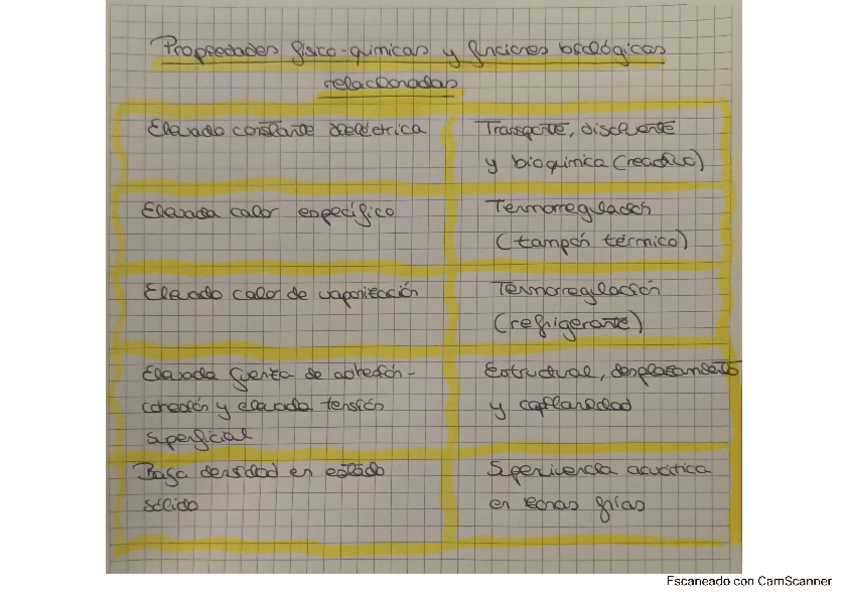 Propiedades físico-químicas y funciones biológicas
relacionadas
Elevado constante dieléctrica
Transporte, disolvente
y bioquímica (reactivo)
Elevada calor específico
Termorregulación
(tampón térmico)
Elevado calor de vaporización
Termorregulación
(refrigerante)
Elevada fuerza de adhesión-
cohesión y elevada tensión
superficial
Estructural, desplazamiento
y capilaridad
Baja densidad en estado
sólido
Supervivencia acuática
en zonas frías
Escaneado con CamScanner